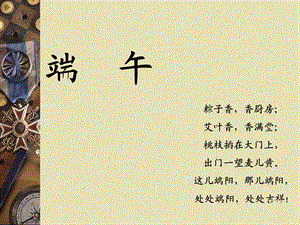 端 午
粽子香，香厨房；
艾叶香，香满堂；
桃枝插在大门上，
出门一望麦儿黄。
这儿端阳，那儿端阳，
处处端阳，处处吉祥！